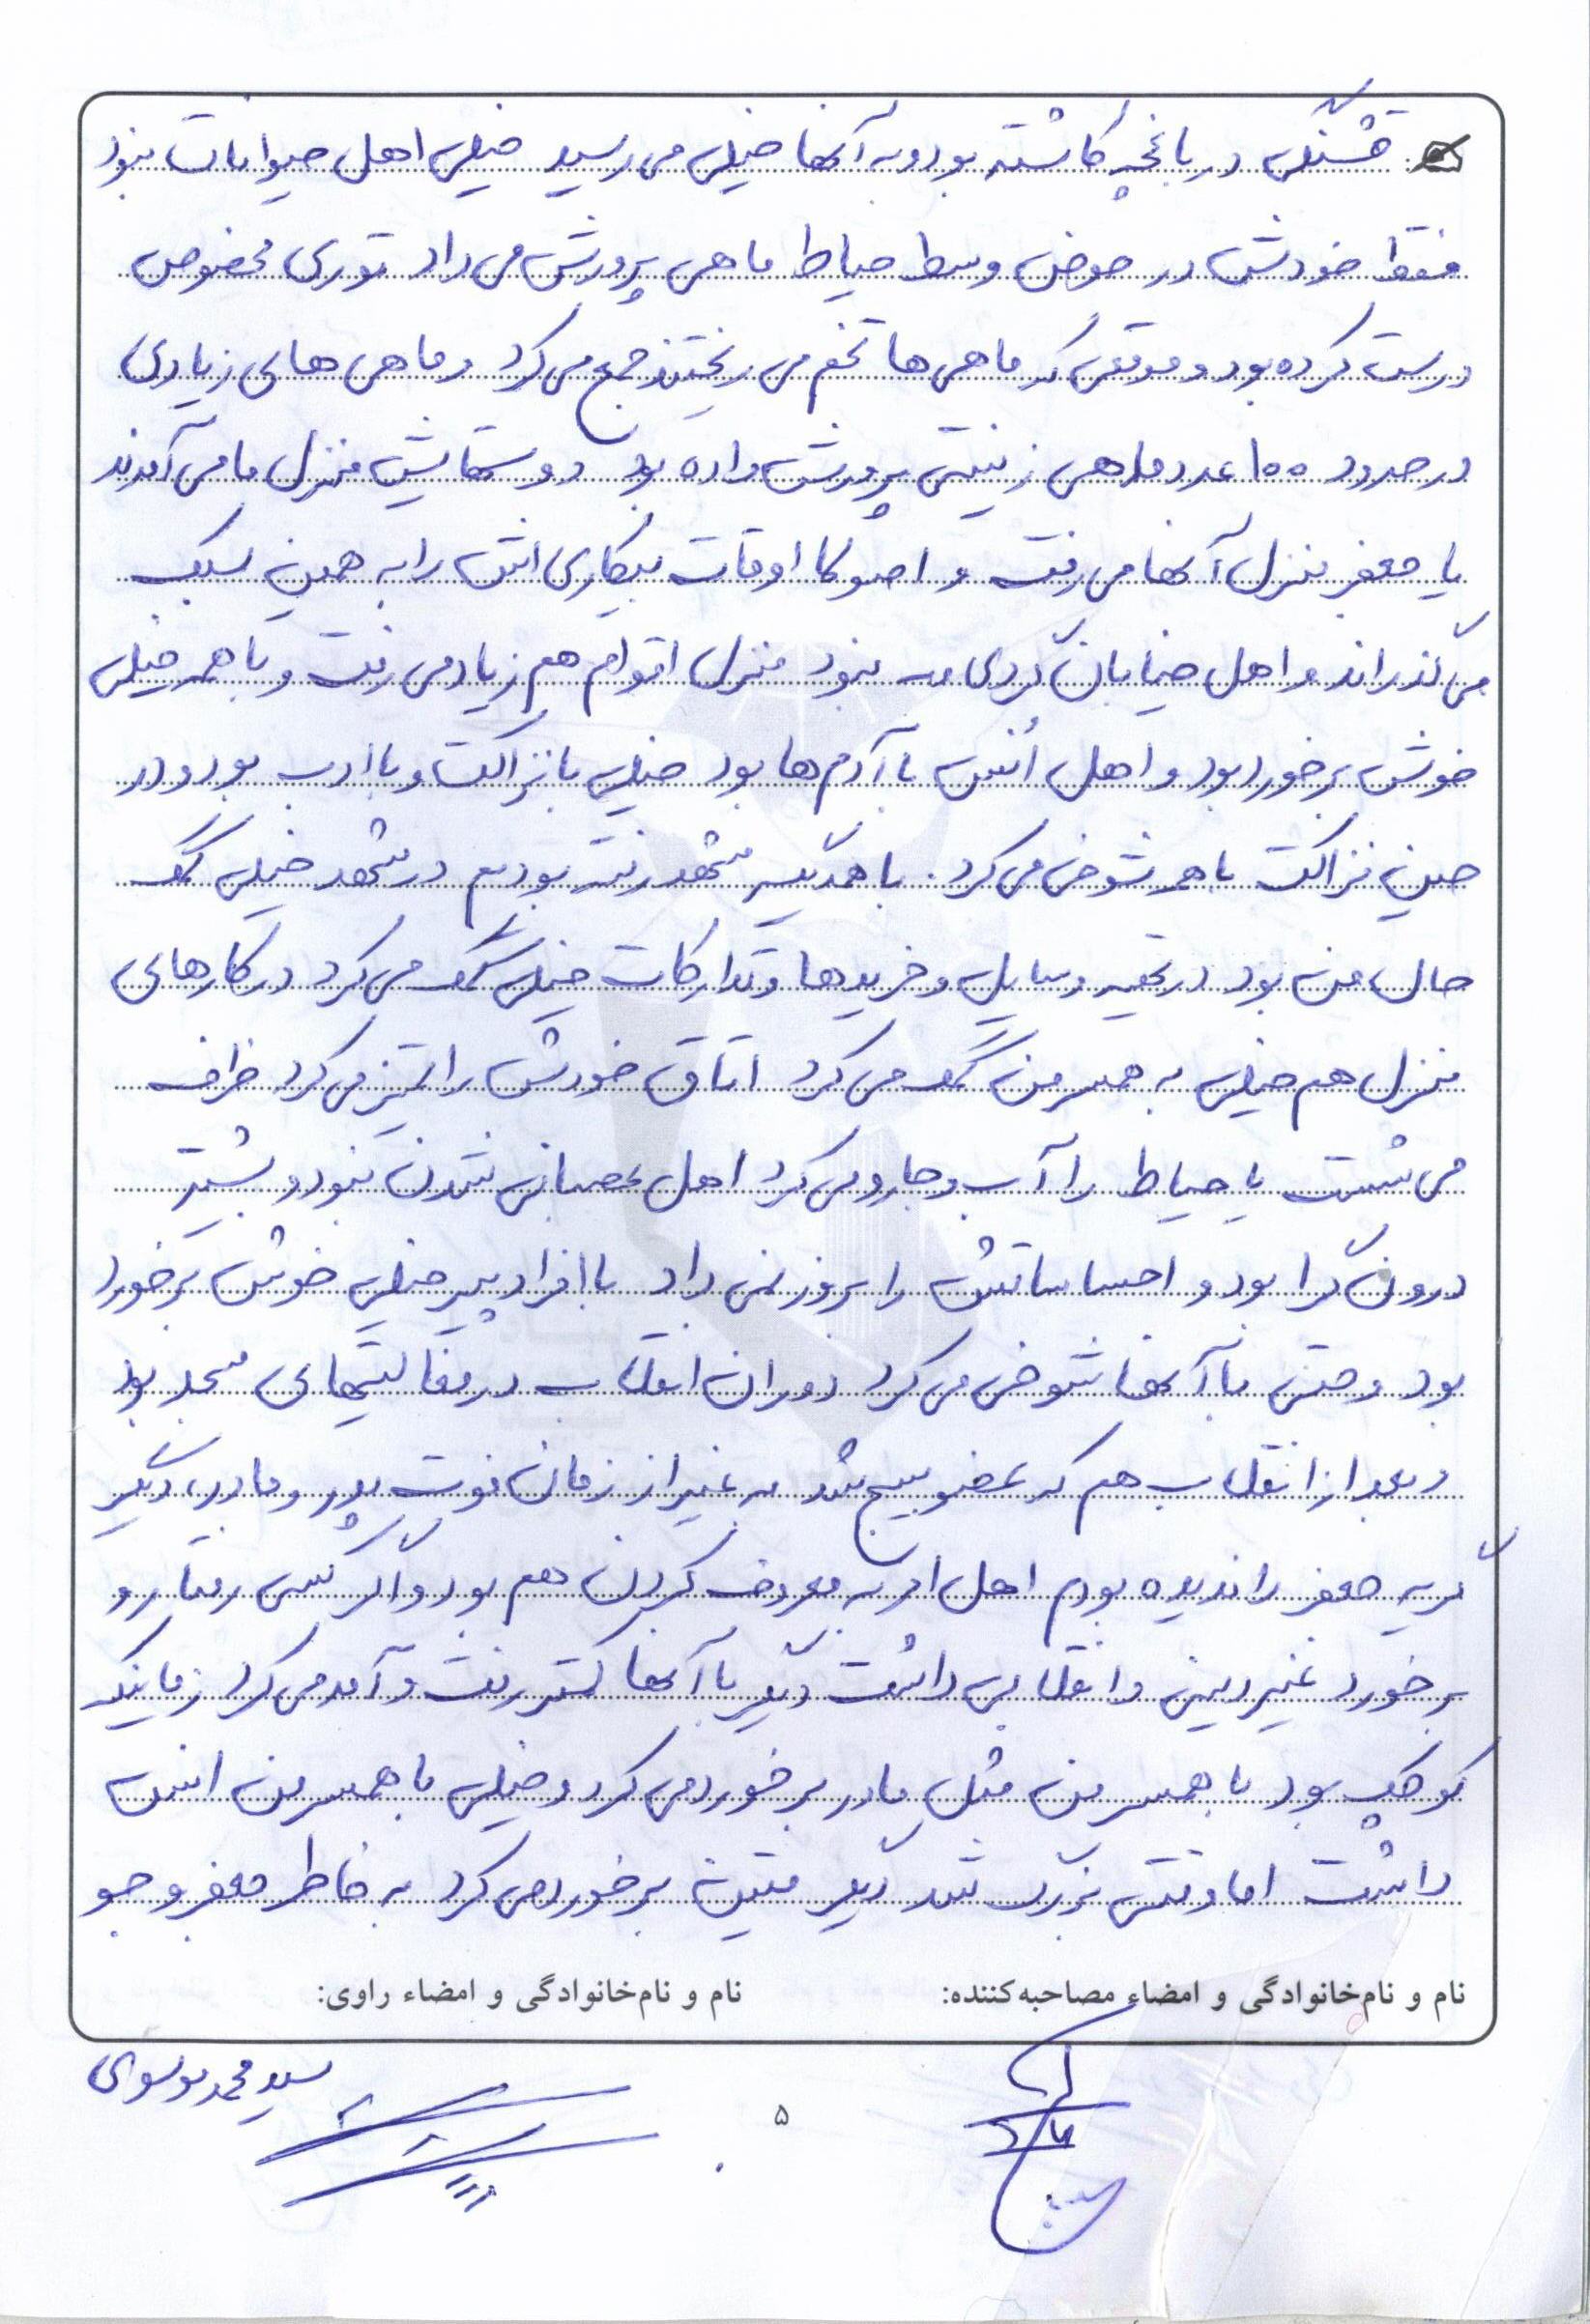 قشنگی در باغچه کاشته بود و به آنها خیلی می رسید خیلی اهل حیوانات نبود
فقط خودش در حوض وسط حیاط ماهی پرورش می داد توری مخصوص
درست کرده بود و موقعی که ماهی ها تخم می ریختند جمع می کرد و ماهی های زیادی
در حدود ۱۰۰ عدد ماهی زینتی پرورش داده بود دوستهایش منزل ما می آمدند
یا جعفر منزل آنها می رفت و اصولا اوقات بیکاری اش را به همین سبک
می گذراند و اهل خیابان گردی نبود منزل اقوام هم زیاد می رفت و با همه خیلی
خوش برخورد بود و اهل انس با آدم ها بود خیلی با نزاکت و با ادب بود و در
عین نزاکت با همه شوخی می کرد. با همدیگر مشهد رفته بودیم در مشهد خیلی کمک
حال من بود در تهیه وسایل و خریدها و تدارکات خیلی کمک می کرد در کارهای
منزل هم خیلی به همسر من کمک می کرد اتاق خودش را تمیز می کرد ظرف
می شست یا حیاط را آب و جارو می کرد اهل عصبانی شدن نبود و بیشتر
درون گرا بود و احساساتش را بروز نمی داد با افراد پیر خیلی خوش برخورد
بود و حتی با آنها شوخی می کرد دوران انقلاب در فعالیتهای مسجد بود
و بعد از انقلاب هم که عضو بسیج شد به غیر از زمان فوت پدر و مادر، دیگر
گریه جعفر را ندیده بودم اهل امر به معروف کردن هم بود و اگر کسی رفتار و
برخورد غیر دینی و انقلابی داشت دیگر با آنها کمتر رفت و آمد می کرد زمانیکه
کوچک بود با همسر من مثل مادر برخورد می کرد و خیلی با همسر من انس
داشت اما وقتی بزرگ شد دیگر متین برخورد می کرد به خاطر جعفر و جو
نام و نام‌خانوادگی و امضاء مصاحبه‌کننده:
نام و نام‌خانوادگی و امضاء راوی:
سید محمد موسوی
۵